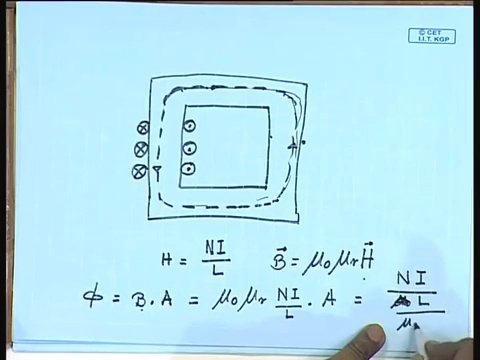 © CET
I.I.T. KGP
H = NI/L   B⃗ = μ₀μᵣH⃗
Φ = B . A = μ₀μᵣ NI/L . A = NI / (L / μ